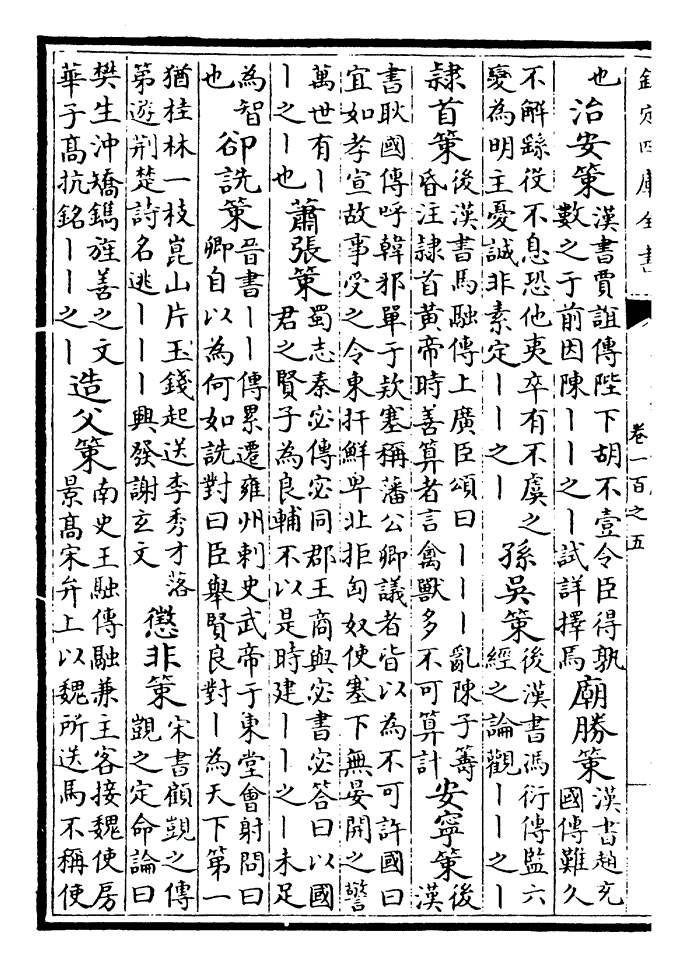 欽定四庫全書
卷一百之五
也
治安策
漢書賈誼傳陛下胡不壹令臣得孰
數之于前因陳丨丨之丨試詳擇焉
廟勝策
漢書趙充
國傳難久
不解繇役不息恐他夷卒有不虞之
變為明主憂誠非素定丨丨之丨
孫吳策
後漢書馮衍傳監六
經之論觀丨丨之丨
隸首策
後漢書馬融傳上廣臣頌曰丨丨丨亂陳子籌
昏注隸首黃帝時善算者言禽獸多不可算計
安寧策
後
漢
書耿國傳呼韓邪單于款塞稱藩公卿議者皆以為不可許國曰
宜如孝宣故事受之令東扞鮮卑北拒匈奴使塞下無晏開之警
萬世有丨
丨之丨也
蕭張策
蜀志秦宓傳宓同郡王商與宓書宓答曰以國
君之賢子為良輔不以是時建丨丨之丨未足
為智
也
卻詵策
晉書丨丨傳累遷雍州刺史武帝于東堂會射問曰
卿自以為何如詵對曰臣舉賢良對丨為天下第一
猶桂林一枝崑山片玉錢起送李秀才落
第遊荆楚詩名逃丨丨丨興發謝玄文
懲非策
宋書顧覬之傳
覬之定命論曰
樊生沖矯鐫旌善之文
華子高抗銘丨丨之丨
造父策
南史王融傳融兼主客接魏使房
景高宋弁上以魏所送馬不稱使